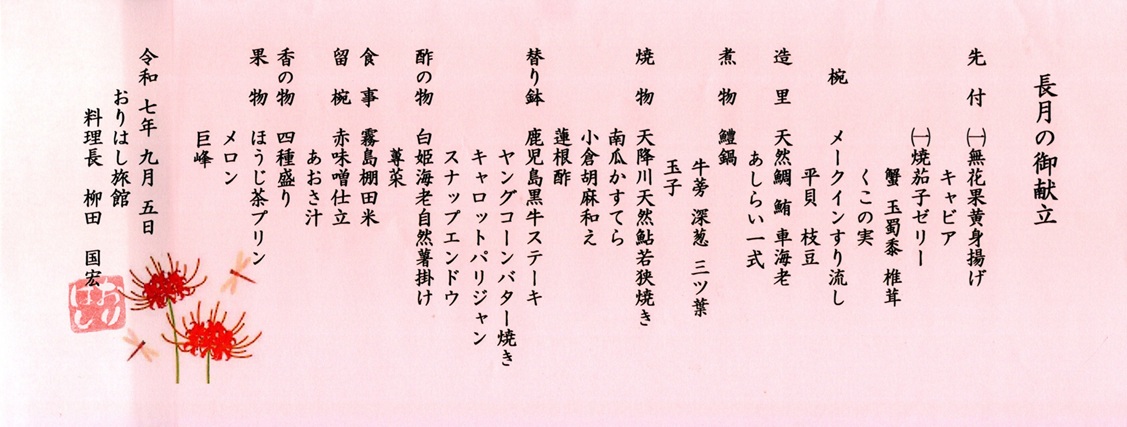 長月の御献立
先付 ㈠無花果黄身揚げ
キャビア
㈠焼茄子ゼリー
蟹 玉蜀黍 椎茸
くこの実
椀 メークインすり流し
平貝 枝豆
造里 天然鯛 鮪 車海老
あしらい一式
煮物 鱧鍋
牛蒡 深葱 三ツ葉
玉子
焼物 天降川天然鮎若狭焼き
南瓜かすてら
小倉胡麻和え
蓮根酢
替り鉢 鹿児島黒牛ステーキ
ヤングコーンバター焼き
キャロットパリジャン
スナップエンドウ
酢の物 白姫海老自然薯掛け
蓴菜
食事 霧島棚田米
留椀 赤味噌仕立
あおさ汁
香の物 四種盛り
果物 ほうじ茶プリン
メロン
巨峰
令和 七年 九月 五日
おりはし旅館
料理長 柳田 国宏
おりはし